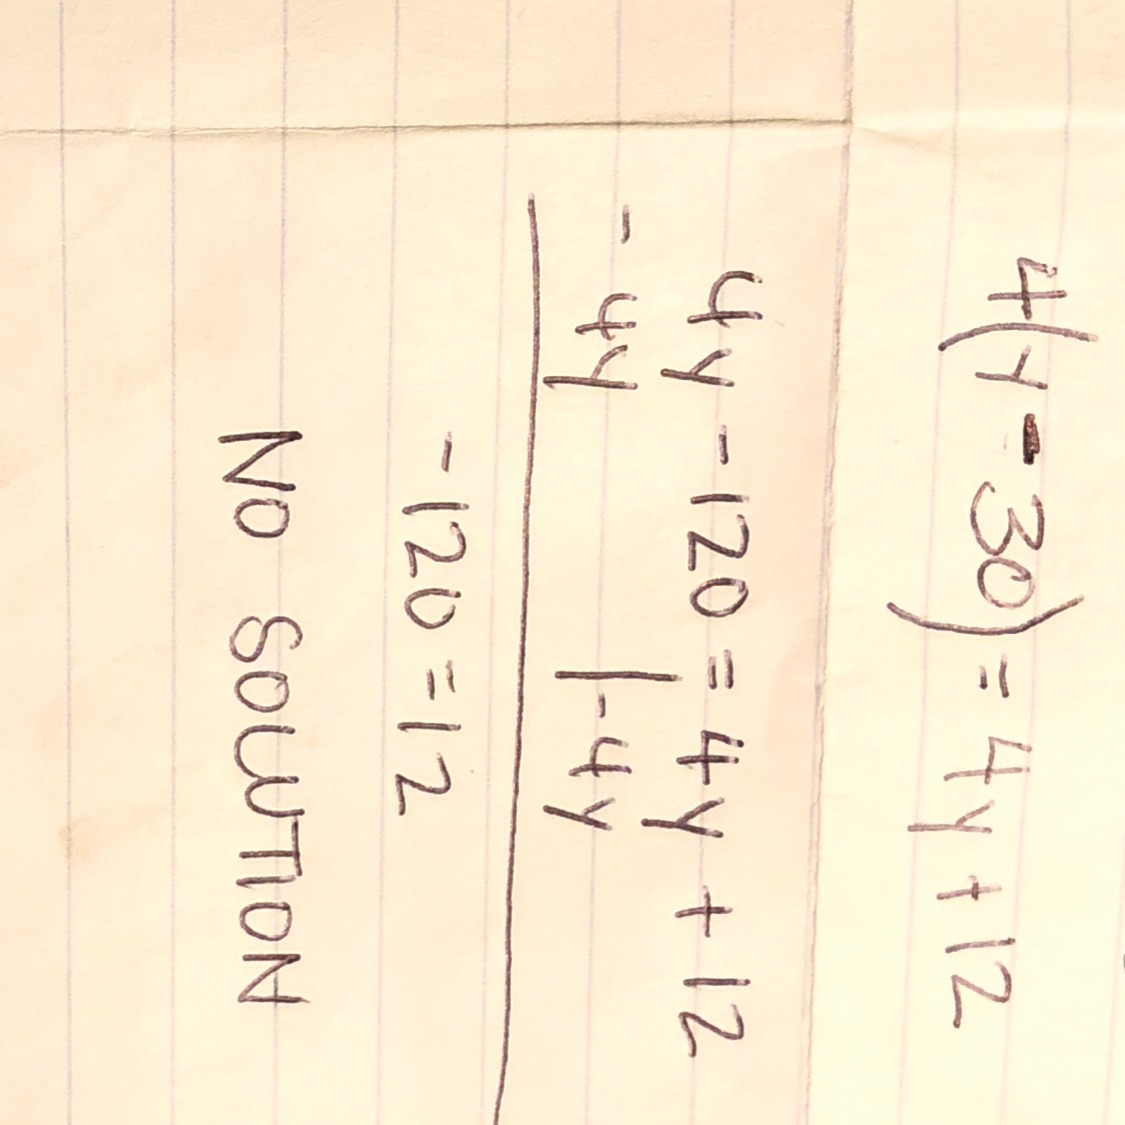 4(y-30)=4y+12
4y-120=4y+12
-4y |-4y
-120=12
NO SOLUTION